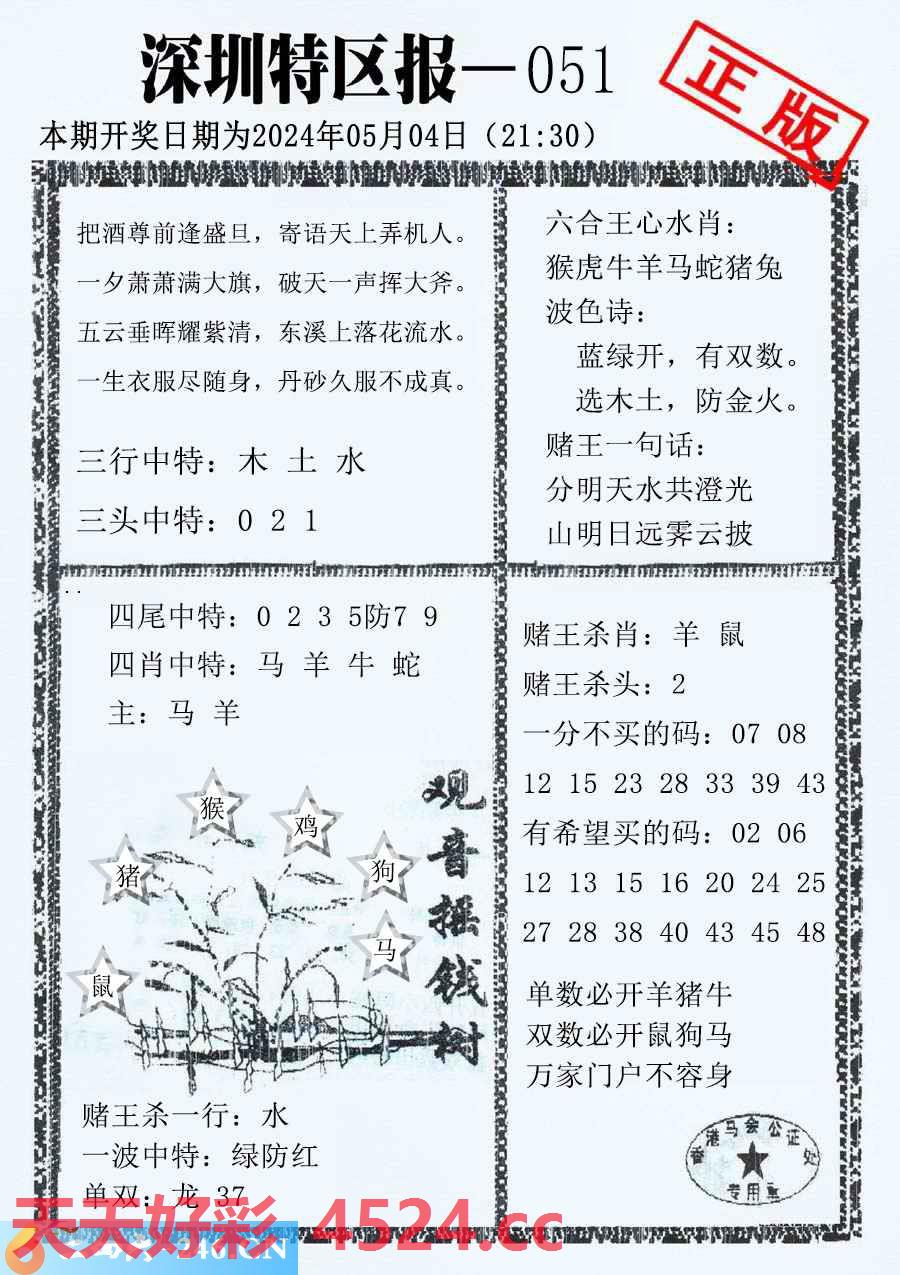 深圳特区报—051
正版
本期开奖日期为2024年05月04日（21:30）
把酒尊前逢盛旦，寄语天上弄机人。
一夕萧萧满大旗，破天一声挥大斧。
五云垂晖耀紫清，东溪上落花流水。
一生衣服尽随身，丹砂久服不成真。
三行中特：木 土 水
三头中特：0 2 1
六合王心水肖：
猴虎牛羊马蛇猪兔
波色诗：
蓝绿开，有双数。
选木土，防金火。
赌王一句话：
分明天水共澄光
山明日远霁云披
四尾中特：0 2 3 5防7 9
四肖中特：马 羊 牛 蛇
主：马 羊
观音摇钱树
猴
鸡
猪
狗
马
鼠
赌王杀一行：水
一波中特：绿防红
单双：龙 37
赌王杀肖：羊 鼠
赌王杀头：2
一分不买的码：07 08
12 15 23 28 33 39 43
有希望买的码：02 06
12 13 15 16 20 24 25
27 28 38 40 43 45 48
单数必开羊猪牛
双数必开鼠狗马
万家门户不容身
香港马会公证处
专用章
天天好彩 4524.cc